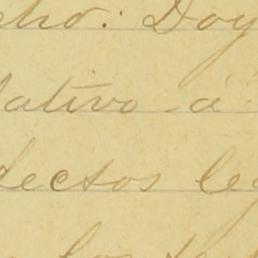 cho: Doy
lativo á
fectos leg